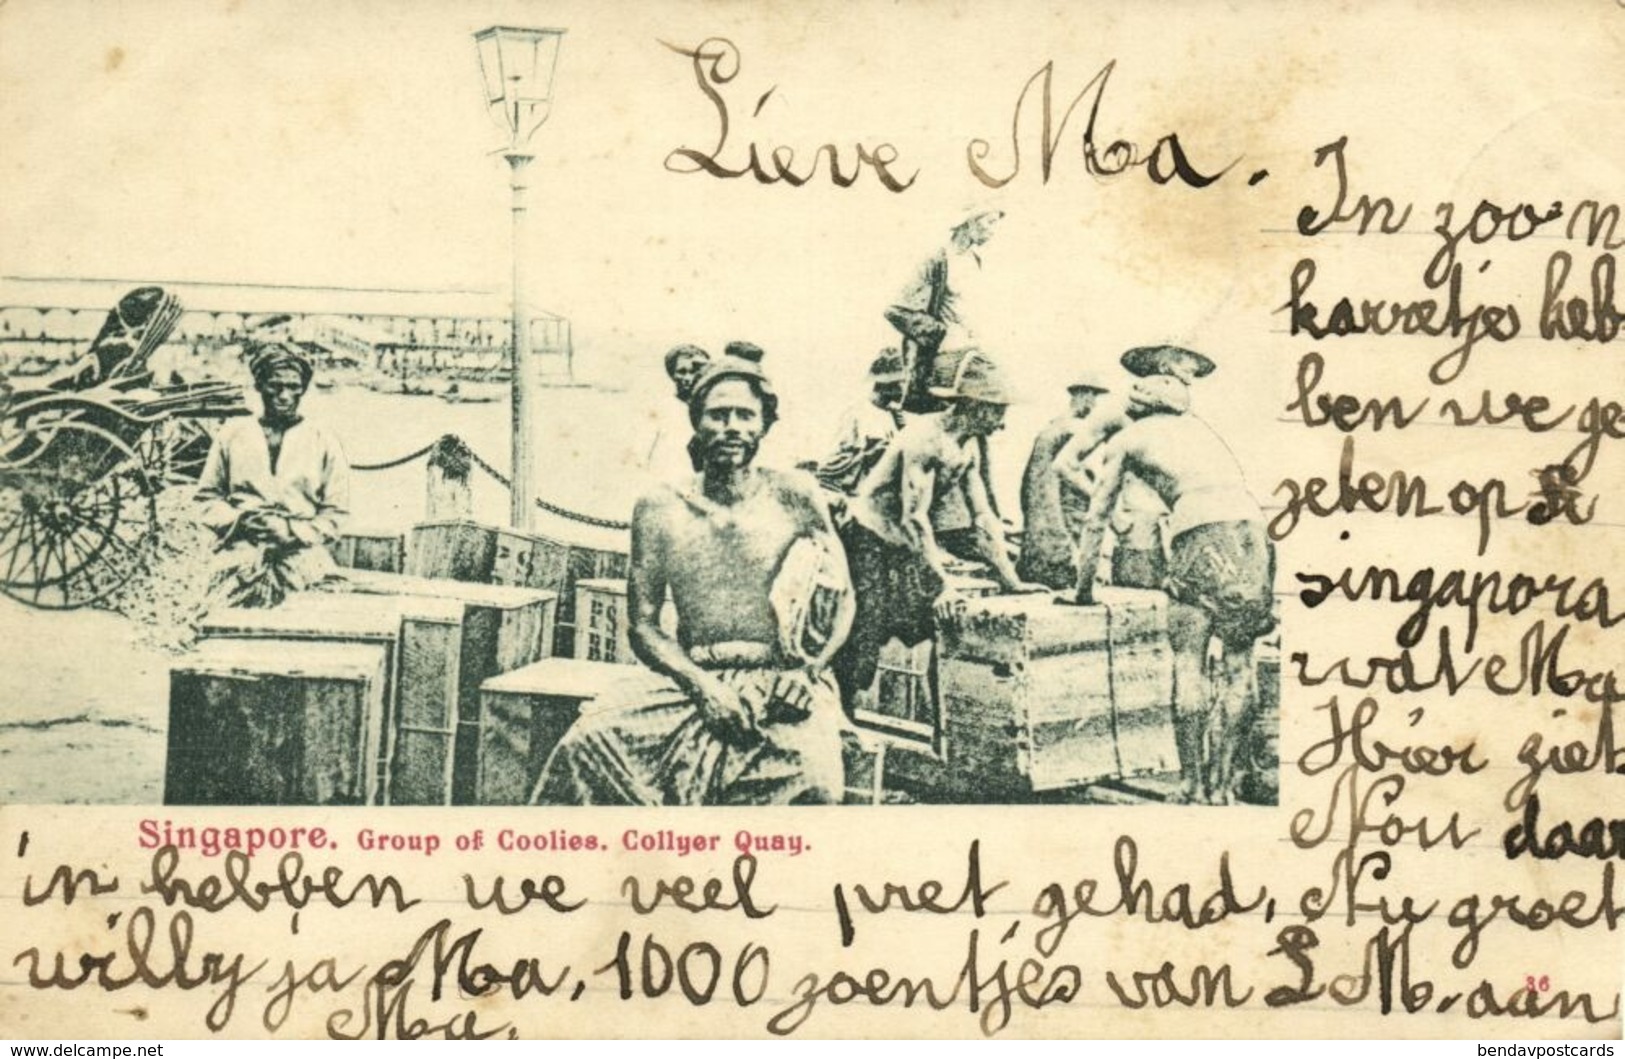 Lieve Ma.
In zoo'n
karretje heb
ben we ge
zeten op
singapora
wat Ma
Hier ziet
Nou daar
Singapore. Group of Coolies. Collyer Quay.
in hebben we veel pret gehad, Nu groet
willy ja Ma, 1000 zoentjes van L M. aan
36
Ma.
www.delcampe.net
bendavpostcards